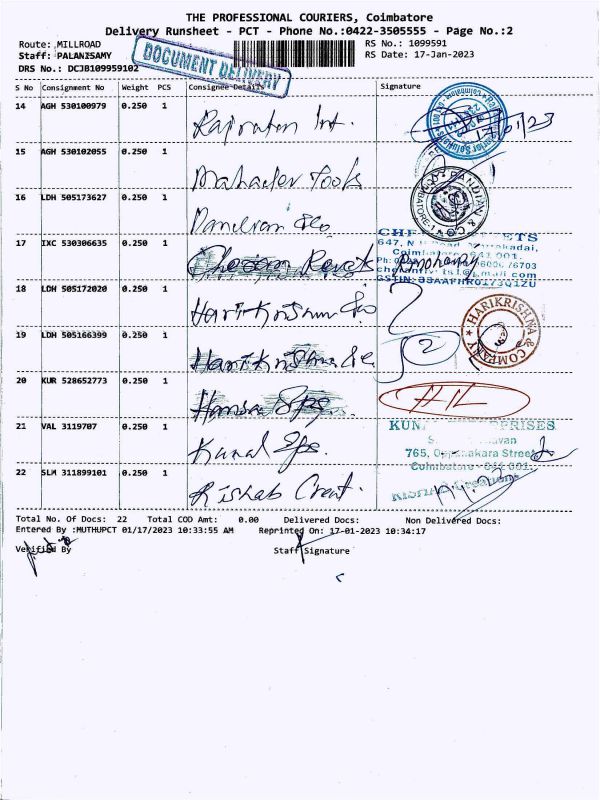 THE PROFESSIONAL COURIERS, Coimbatore
Delivery Runsheet - PCT - Phone No.:0422-3505555 - Page No.:2
Route: MILLROAD
RS No.: 1099591
Staff: PALANISAMY
RS Date: 17-Jan-2023
DRS No.: DCJB109959102
DOCUMENT DELIVERY
S No Consignment No Weight PCS Consignee Details Signature
14 AGH 530100979 0.250 1 Rajratan Int.
17/01/23
15 AGH 530102055 0.250 1 Mahadev Tools
16 LDH 505173627 0.250 1 & Co
PANDIAN & CO
COIMBATORE-1
17 IXC 530306635 0.250 1
647, N
Coimbatore 641 001.
GSTIN: 33AAFHR0173Q1ZU
18 LDH 505172020 0.250 1 Harikrishna & Co
HARIKRISHNA & COMPANY
19 LDH 505166399 0.250 1 Harikrishna & Co
20 KUR 528652773 0.250 1
21 VAL 3119707 0.250 1 Kunal Eps.
KUN PRISES
765, Oppanakara Street
Coimbatore - 641 001.
22 SLM 311899101 0.250 1 Rishab Creat.
Total No. Of Docs: 22 Total COD Amt: 0.00 Delivered Docs: Non Delivered Docs:
Entered By :MUTHUPCT 01/17/2023 10:33:55 AM Reprinted On: 17-01-2023 10:34:17
Verified By Staff Signature